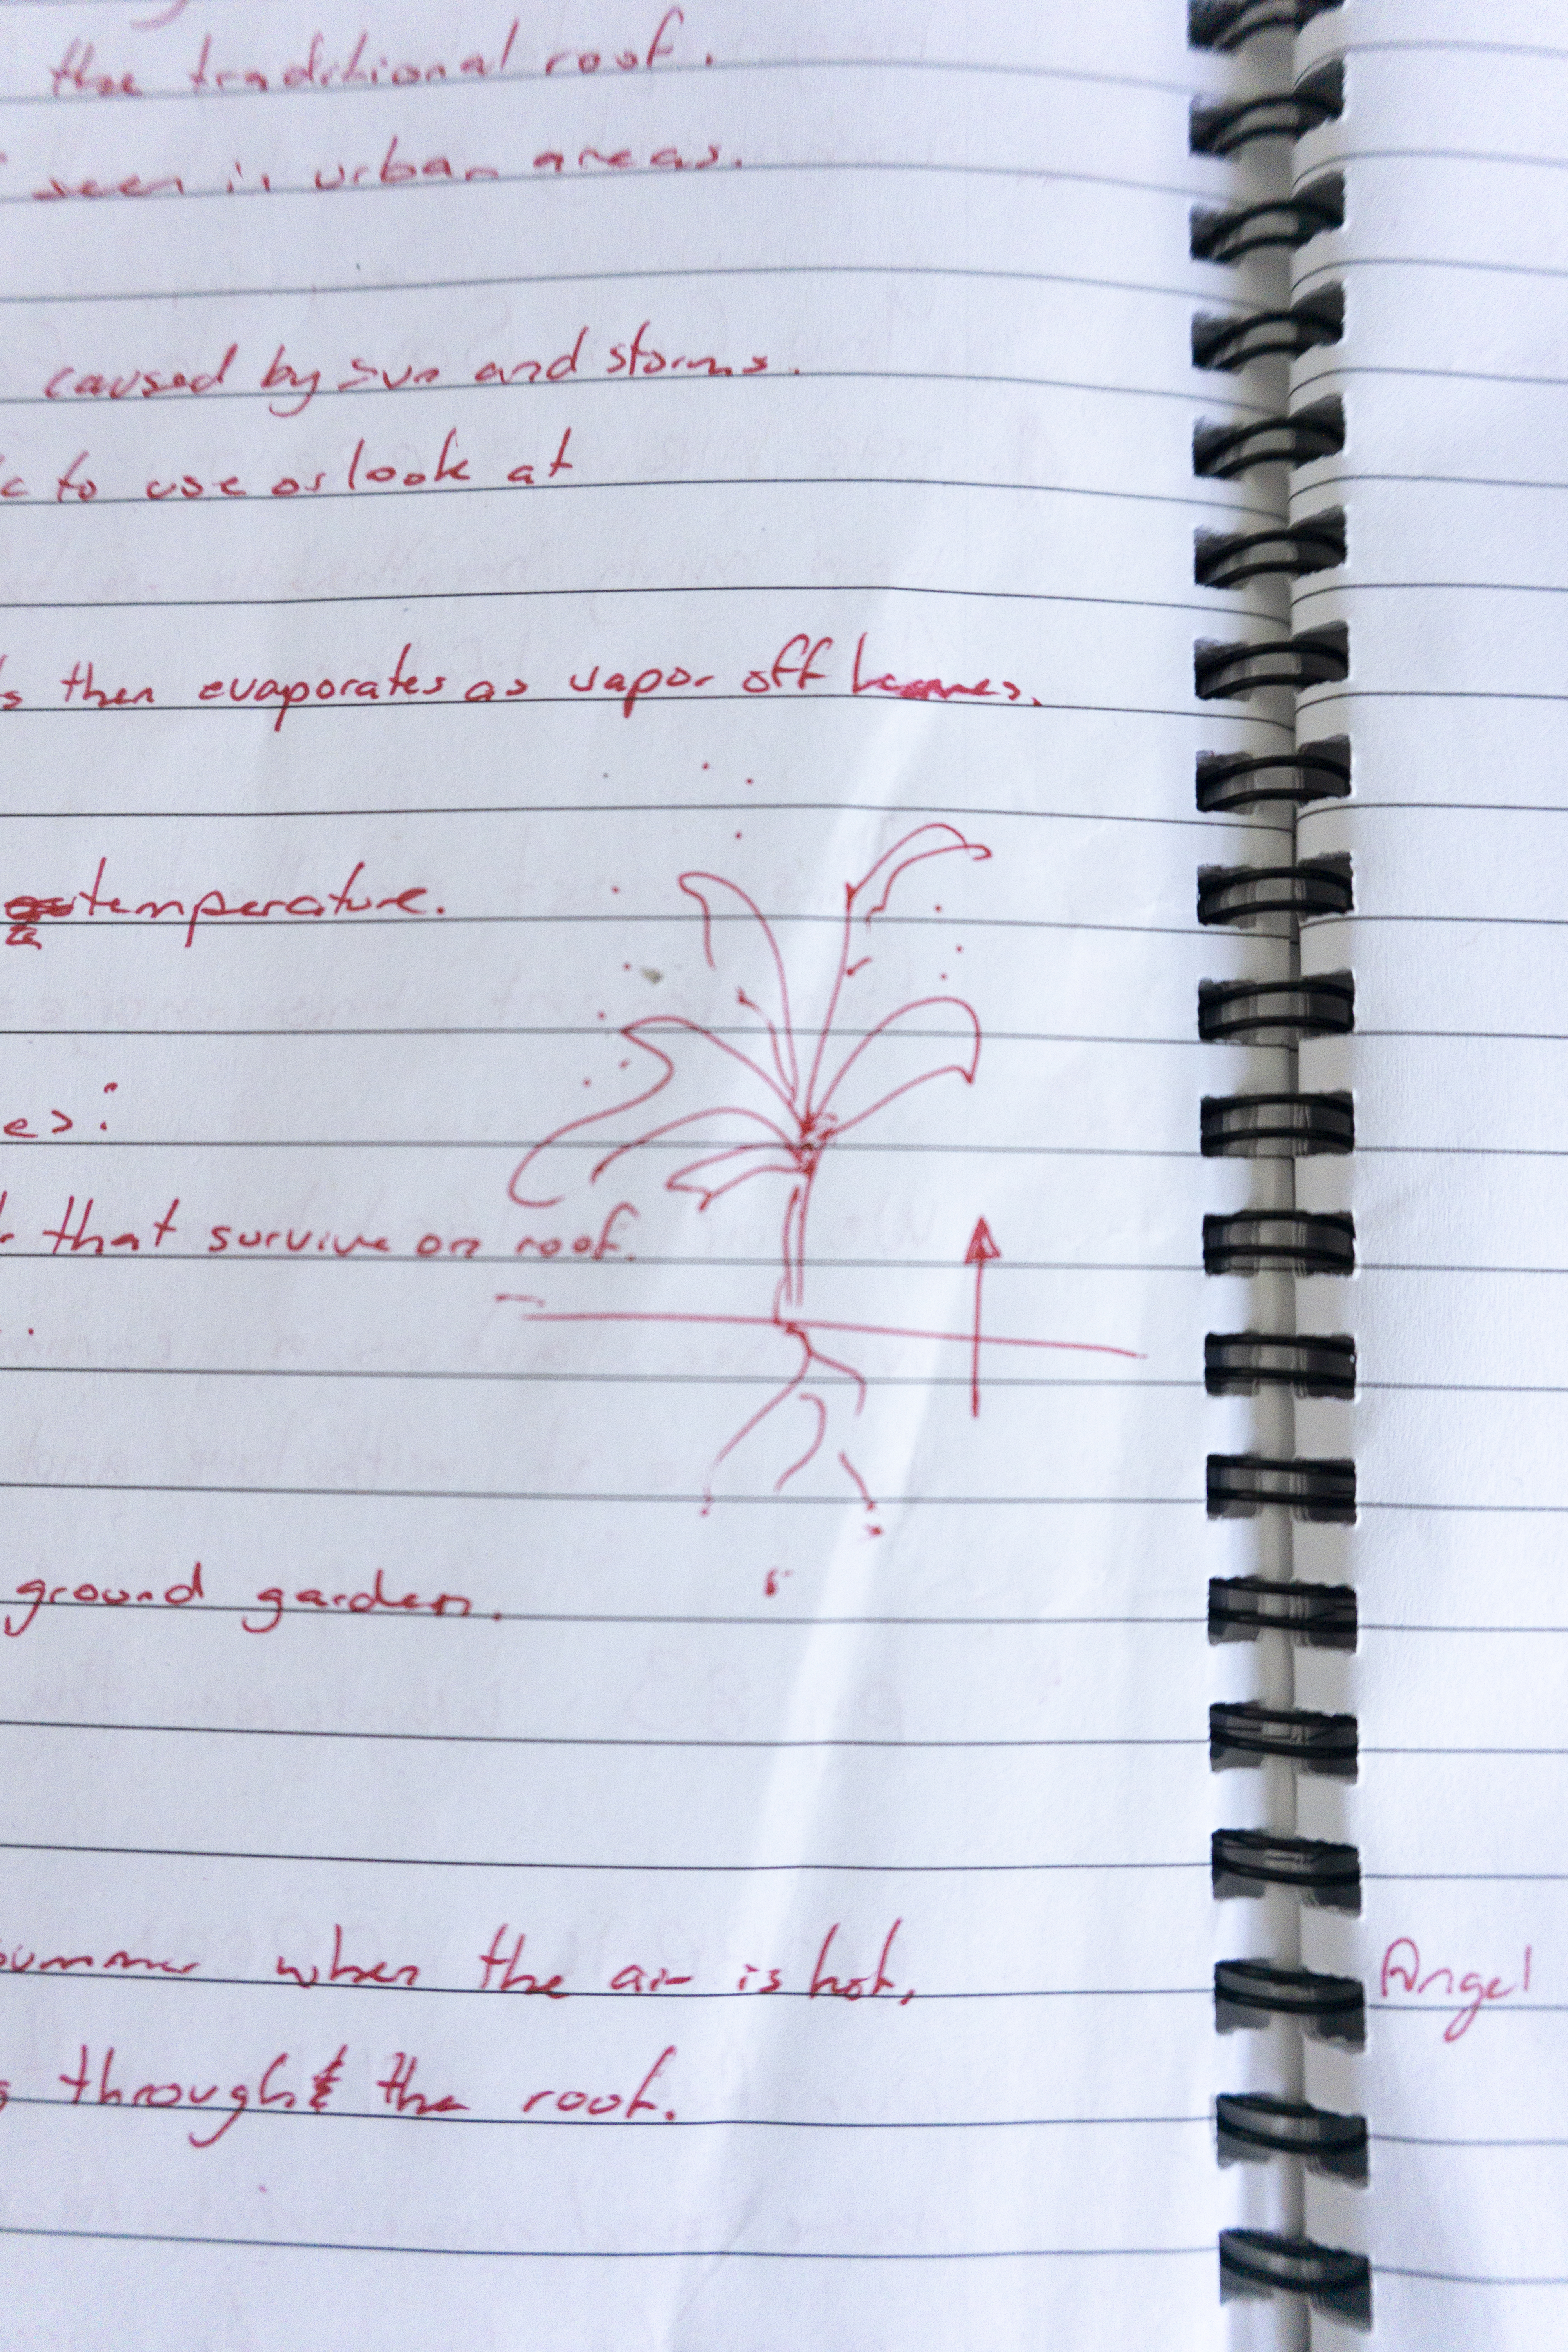 the traditional roof.
seen in urban areas.
caused by sun and storms.
to use or look at
then evaporates as vapor off
temperature.
es:
that survive on roof.
ground garden.
summer when the air is hot,
Angel
through the roof.